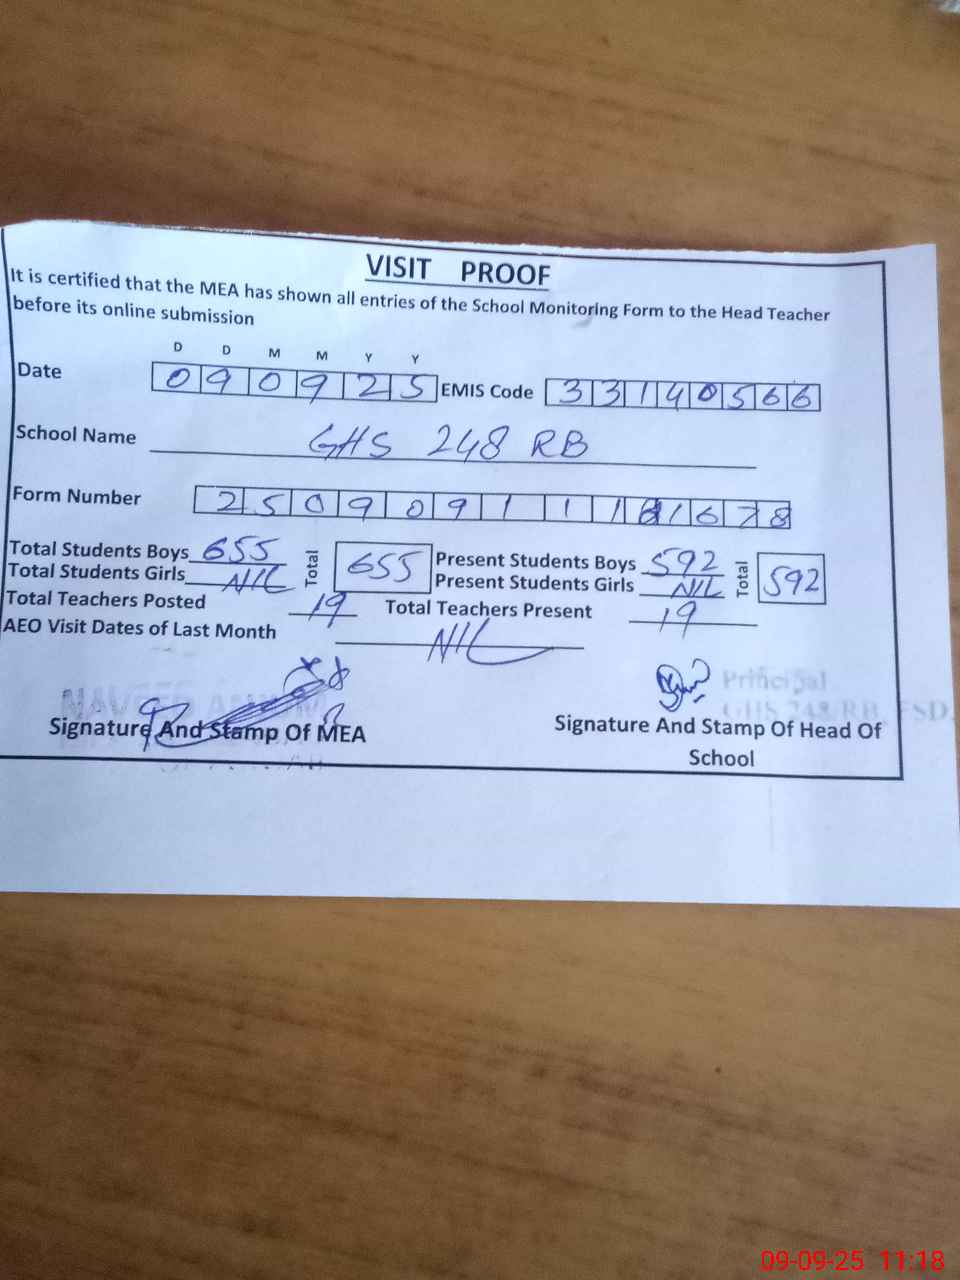 VISIT PROOF
It is certified that the MEA has shown all entries of the School Monitoring Form to the Head Teacher
before its online submission
D D M M Y Y
Date 090925 EMIS Code 33140566
School Name GHS 248 RB
Form Number 250909111 1678
Total Students Boys 655 Total 655 Present Students Boys 592 Total 592
Total Students Girls NIL Present Students Girls NIL
Total Teachers Posted 19 Total Teachers Present 19
AEO Visit Dates of Last Month NIL
Principal
GHS 248 RB, FSD.
Signature And Stamp Of MEA Signature And Stamp Of Head Of
School
09-09-25 11:18